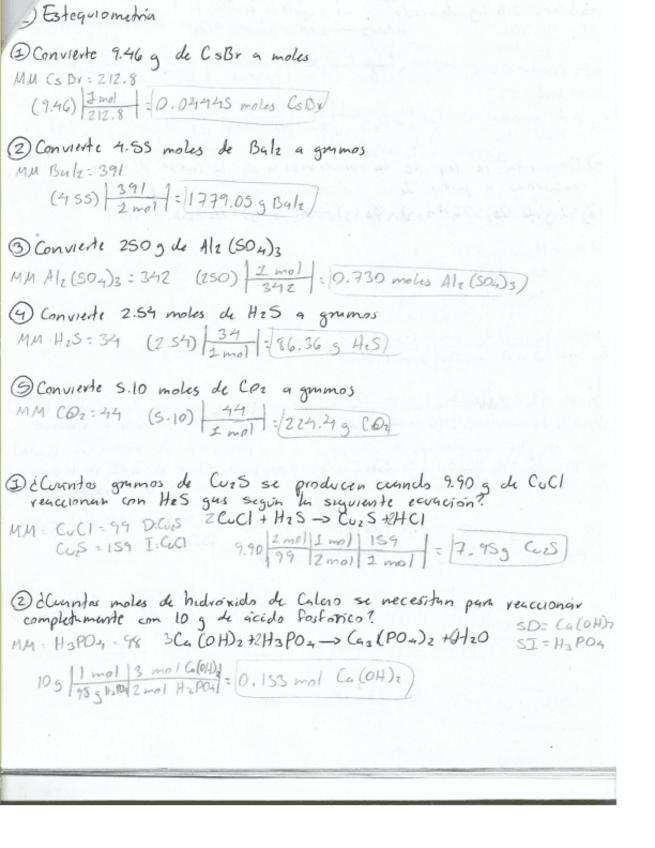 Estequiometría
① Convierte 9.46 g de CsBr a moles
MM CsBr = 212.8
(9.46) | 1 mol / 212.8 | = 0.04445 moles CsBr
② Convierte 4.55 moles de BaI2 a gramos
MM BaI2 = 391
(4.55) | 391 / 1 mol | = 1779.05 g BaI2
③ Convierte 250 g de Al2(SO4)3
MM Al2(SO4)3 = 342 (250) | 1 mol / 342 | = 0.730 moles Al2(SO4)3
④ Convierte 2.54 moles de H2S a gramos
MM H2S = 34 (2.54) | 34 / 1 mol | = 86.36 g H2S
⑤ Convierte 5.10 moles de CO2 a gramos
MM CO2 = 44 (5.10) | 44 / 1 mol | = 224.4 g CO2
① ¿Cuántos gramos de Cu2S se producen cuando 9.90 g de CuCl
reaccionan con H2S gas según la siguiente ecuación?
MM: CuCl = 99 D: Cu2S 2CuCl + H2S → Cu2S + 2HCl
CuS = 159 I: CuCl 9.90 | 1 mol / 99 | 1 mol / 2 mol | 159 / 1 mol | = 7.95 g Cu2S
② ¿Cuántas moles de hidróxido de Calcio se necesitan para reaccionar
completamente con 10 g de ácido fosfórico?
SD = Ca(OH)2
MM: H3PO4 = 98 3Ca(OH)2 + 2H3PO4 → Ca3(PO4)2 + 6H2O SI = H3PO4
10 g | 1 mol / 98 g H3PO4 | 3 mol Ca(OH)2 / 2 mol H3PO4 | = 0.153 mol Ca(OH)2